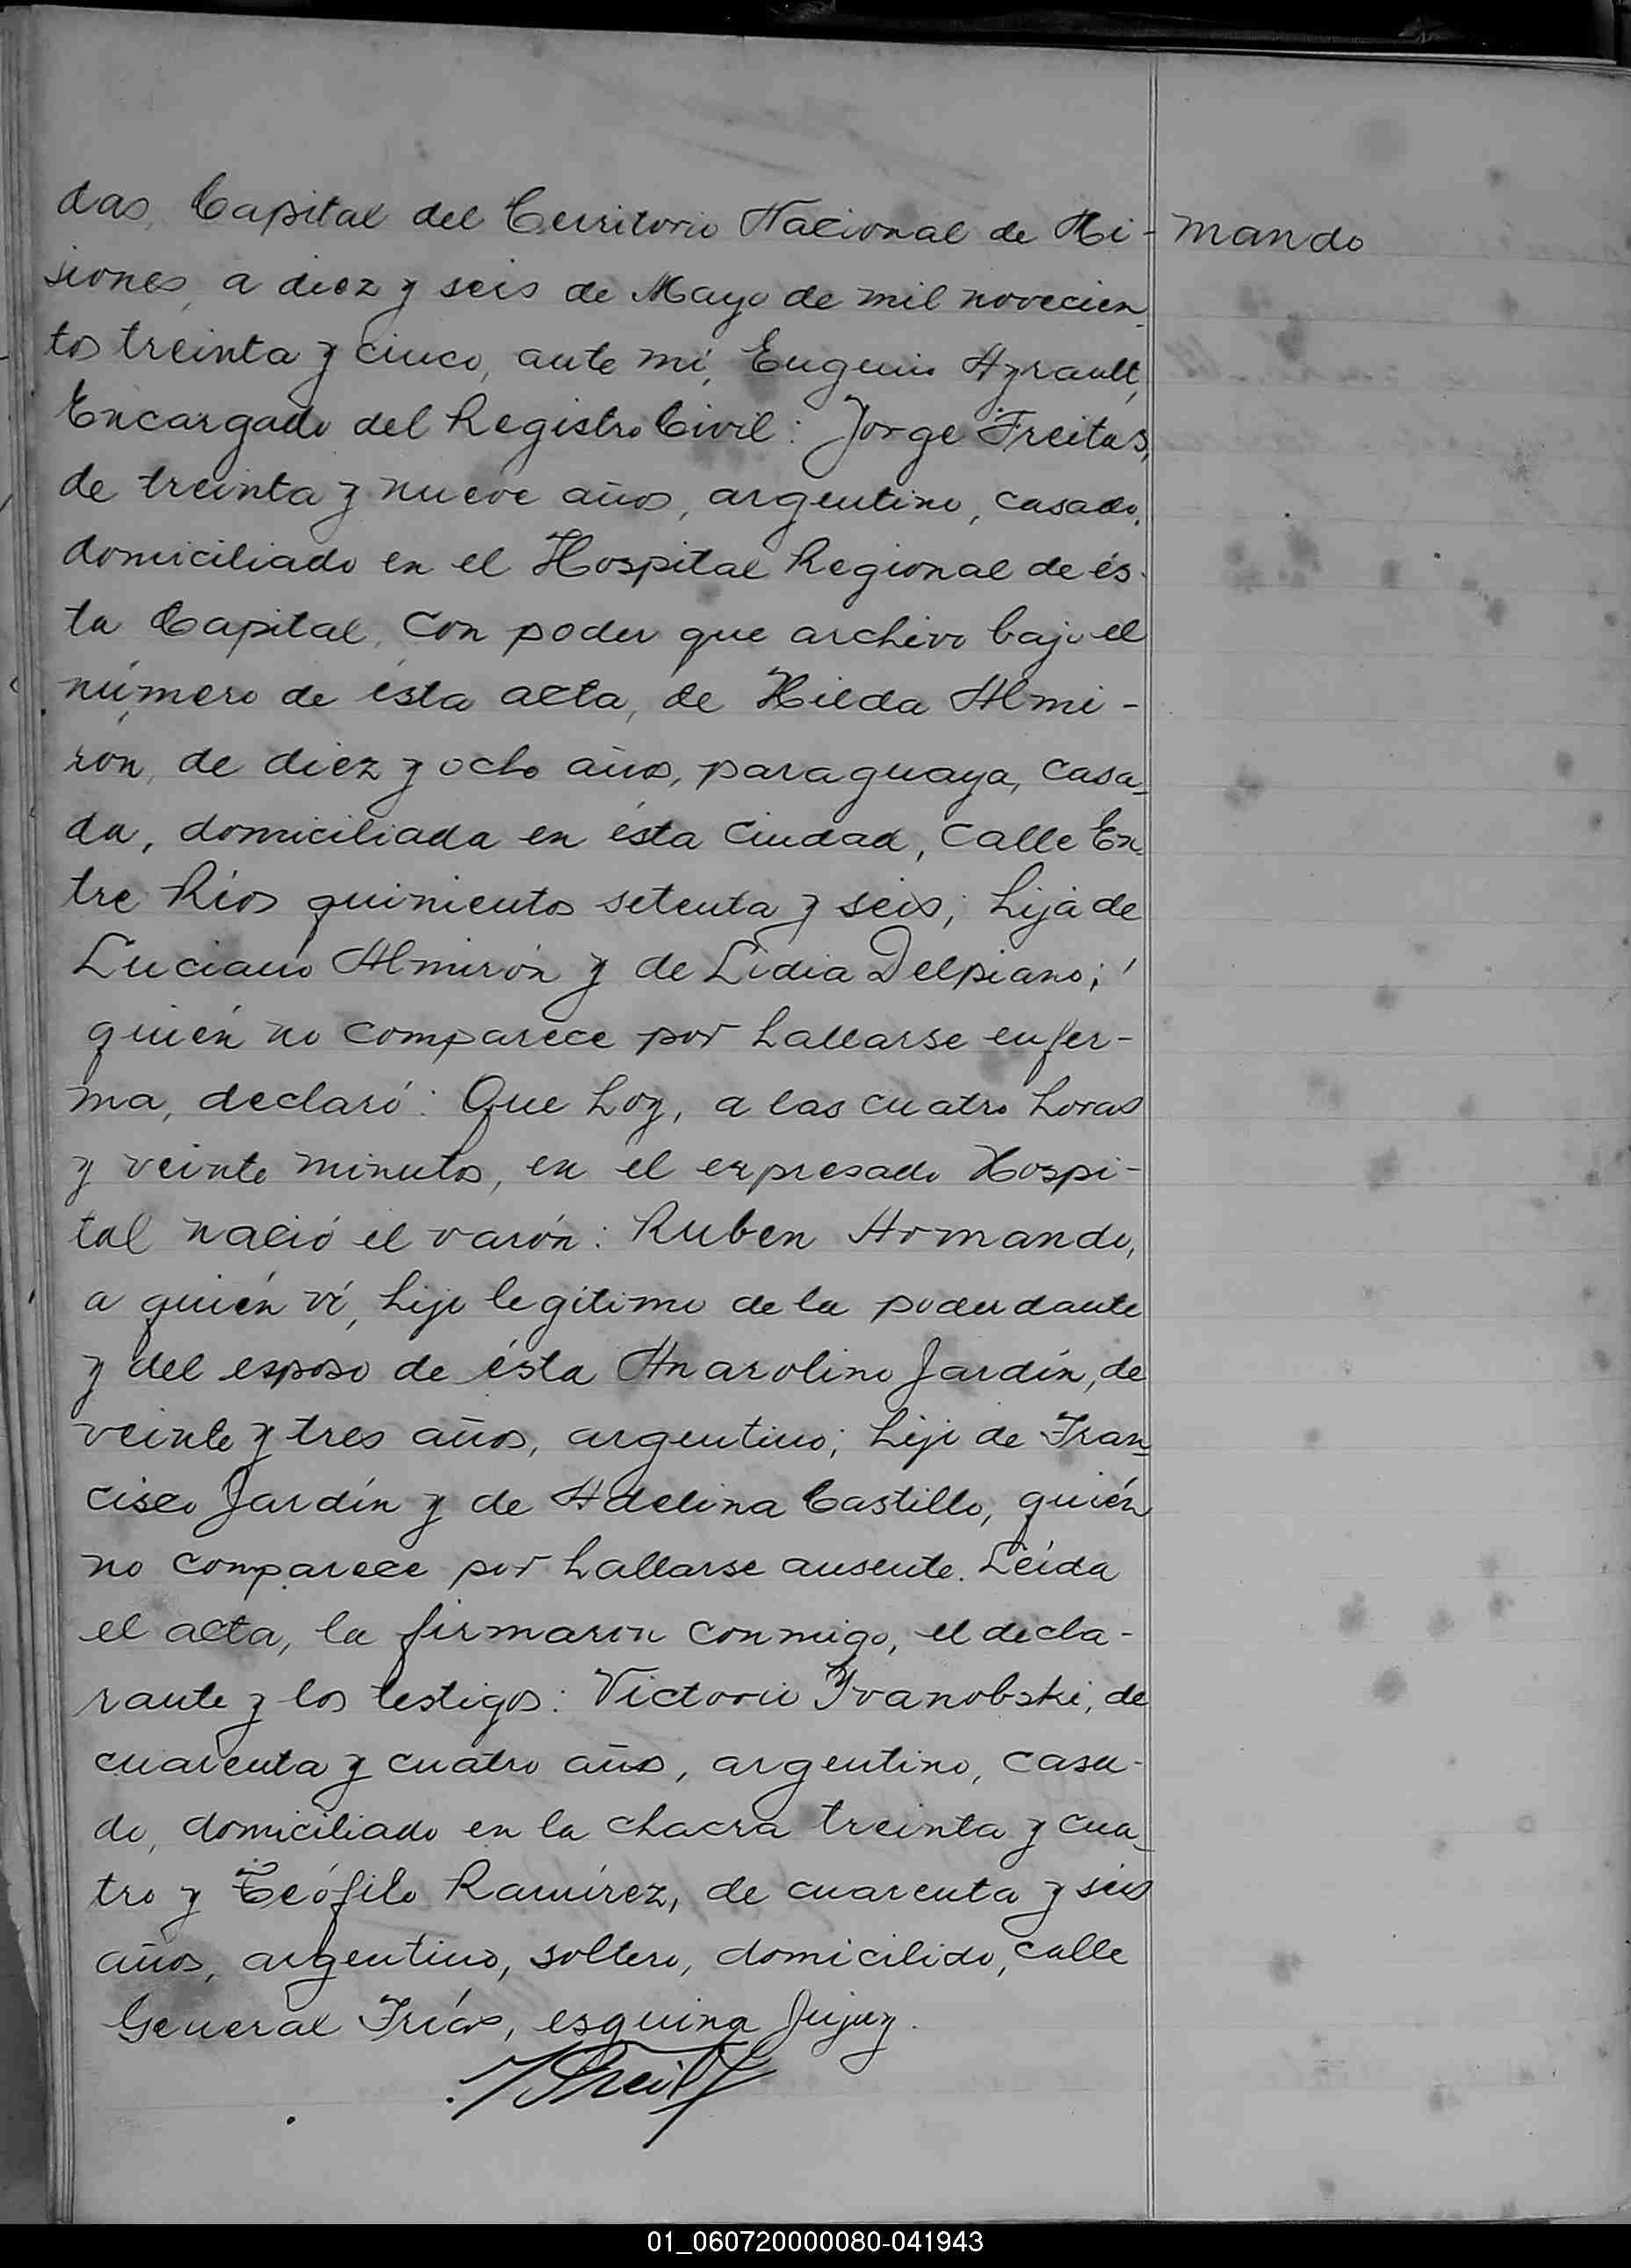 das, Capital del Territorio Nacional de Mi-
mando
siones, a diez y seis de Mayo de mil novecien-
tos treinta y cinco, ante mí, Eugenio Ayrault,
Encargado del Registro Civil: Jorge Freitas,
de treinta y nueve años, argentino, casado,
domiciliado en el Hospital Regional de és-
ta Capital, con poder que archivo bajo el
número de ésta acta, de Hilda Almi-
rón, de diez y ocho años, paraguaya, casa-
da, domiciliada en ésta ciudad, calle En-
tre Ríos quinientos setenta y seis; hija de
Luciano Almirón y de Lidia Delpiano;
quién no comparece por hallarse enfer-
ma, declaró: Que hoy, a las cuatro horas
y veinte minutos, en el expresado Hospi-
tal nació el varón: Ruben Armando,
a quién ví, hijo legítimo de la poderdante
y del esposo de ésta Anarolino Jardín, de
veinte y tres años, argentino; hijo de Fran-
cisco Jardín y de Adelina Castillo, quién
no comparece por hallarse ausente. Leída
el acta, la firmaron conmigo, el decla-
rante y los testigos: Victorio Ivanobski, de
cuarenta y cuatro años, argentino, casa-
do, domiciliado en la chacra treinta y cua-
tro y Teófilo Ramírez, de cuarenta y seis
años, argentino, soltero, domicilido, calle
General Frías, esquina Jujuy.
01_060720000080-041943